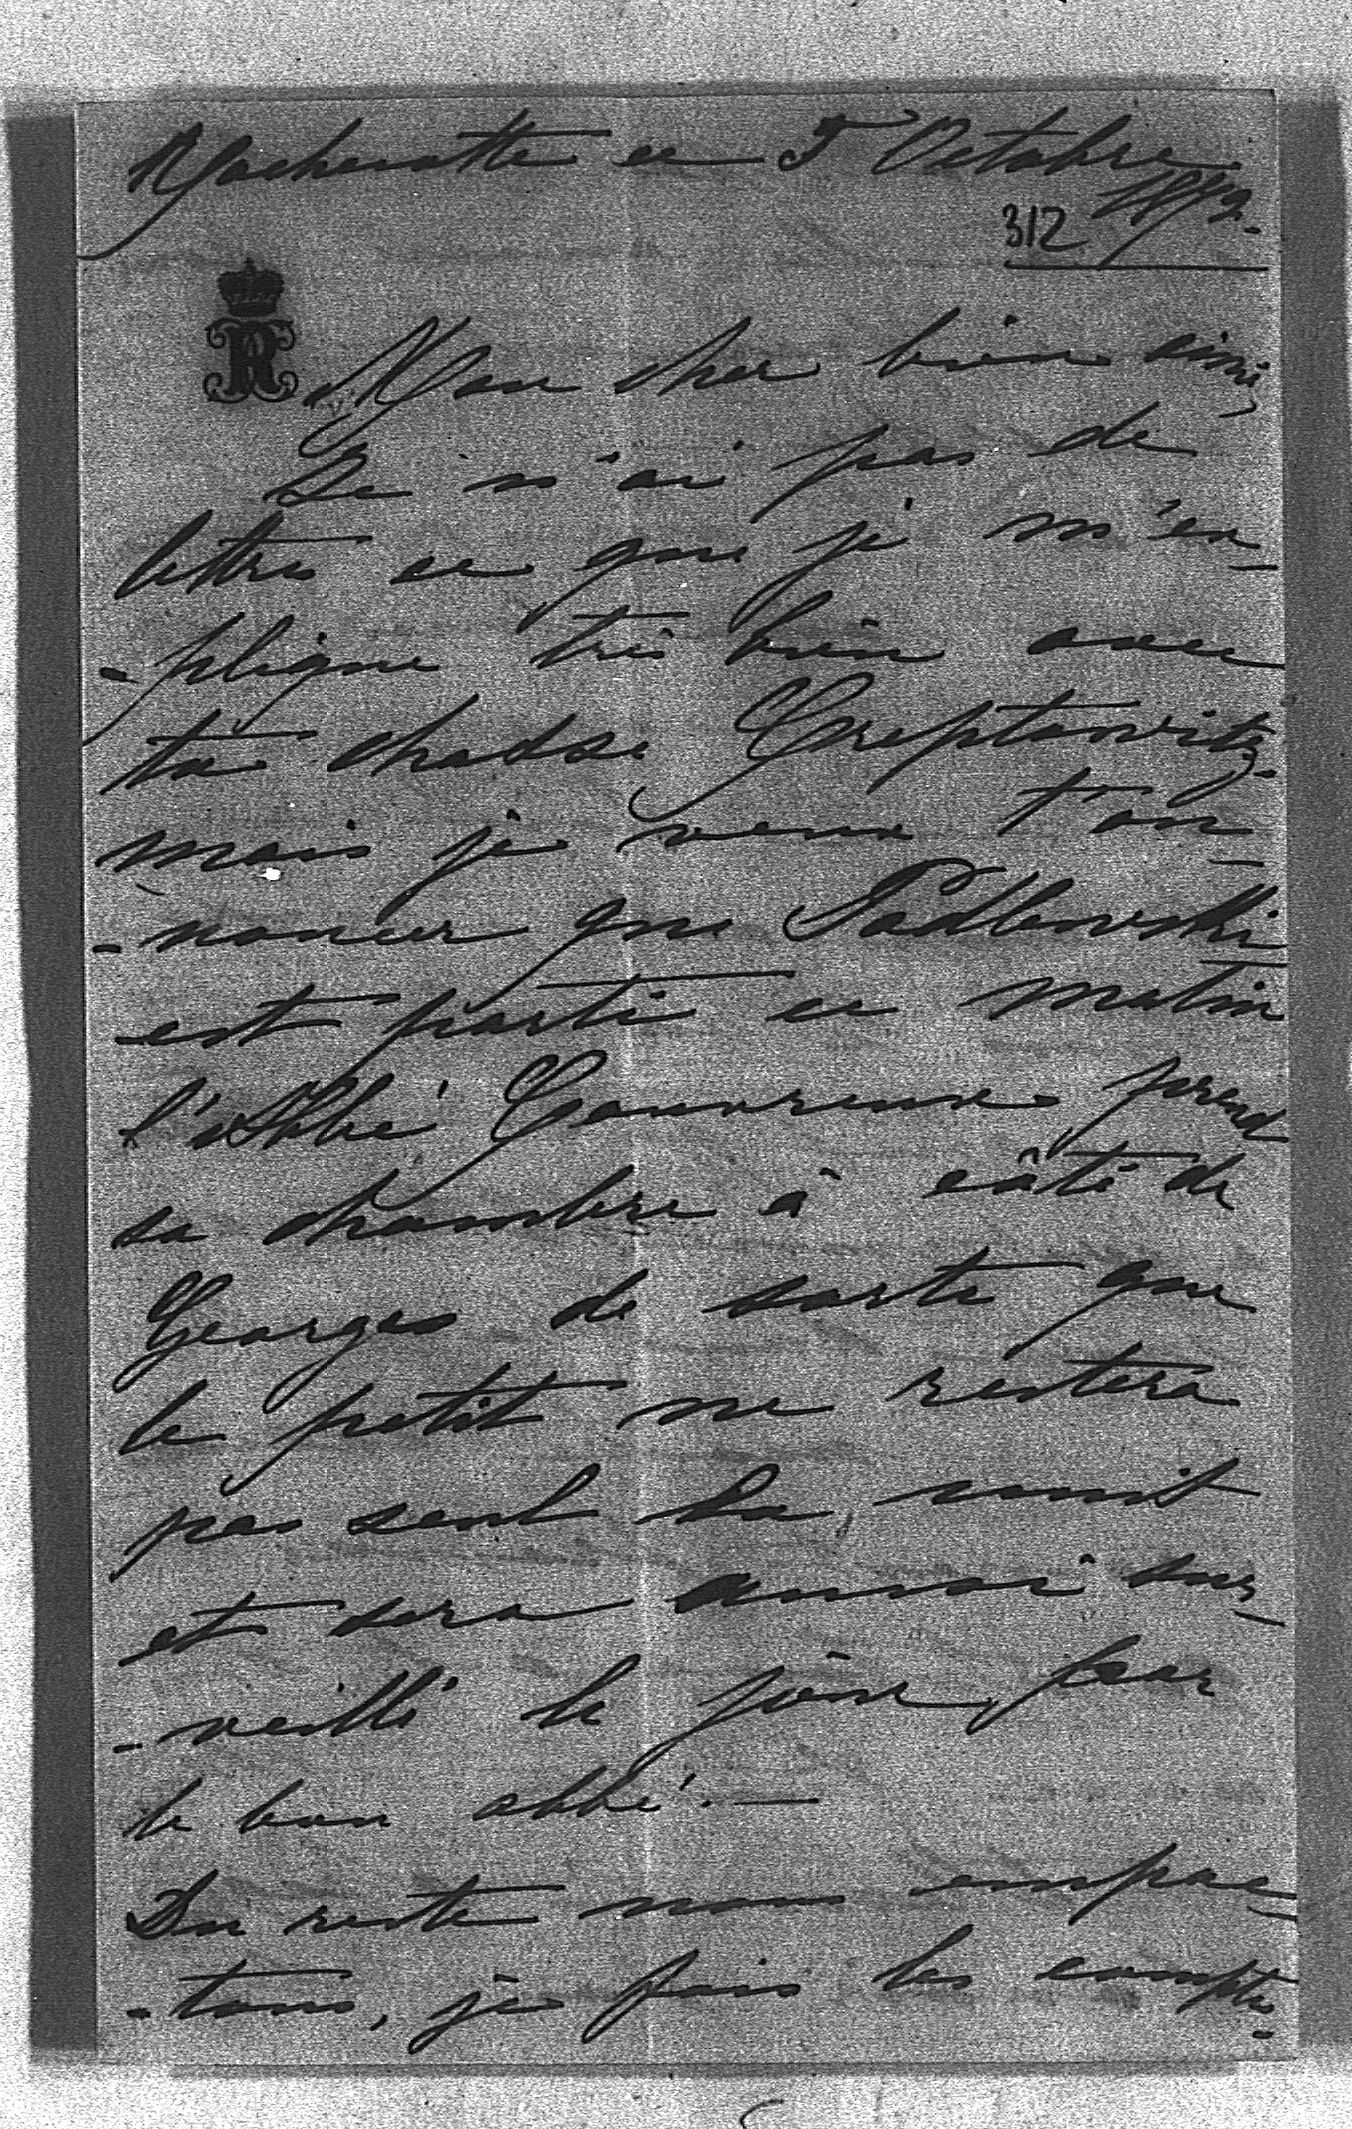 Machnatka ce 5 Octobre
1889.
312
Mon cher bien aimé,
Je n'ai pas de
lettre ce que je m'ex-
-plique très bien avec
ta chasse Chreptowitz.
mais je veux t'an-
-noncer que Padlewski
est parti ce matin
l'Abbé Couvreux prend
sa chambre à côté de
Georges de sorte que
le petit ne restera
pas seul la nuit
et sera aussi sur-
-veillé le jour par
le bon abbé. —
Du reste nous empac-
-tons, je fais les comptes